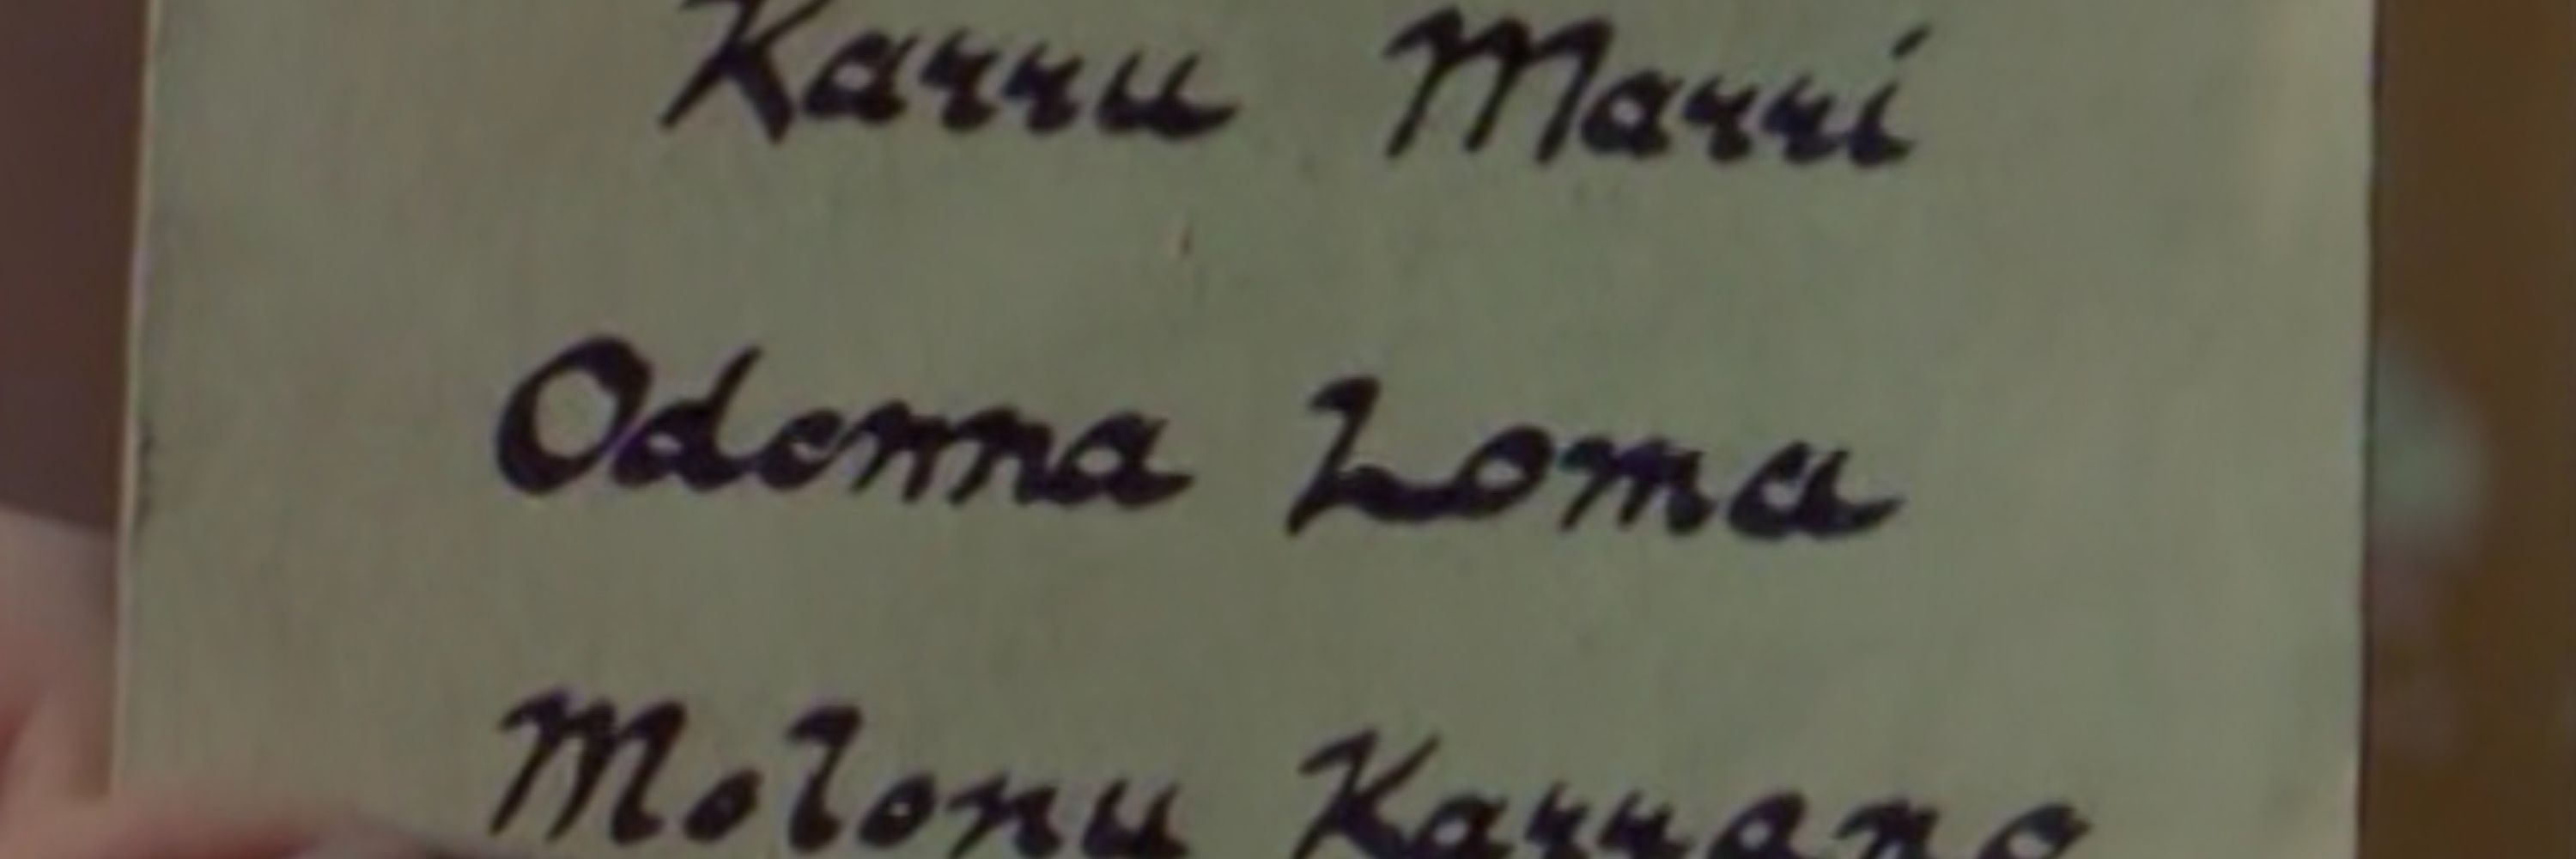 Karru Marri
Odenna Loma
Molonu Karrano